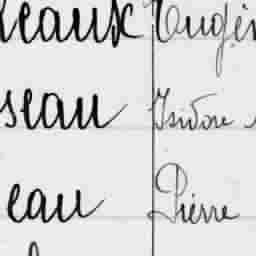 leaux Eugèn
seau Isidore
eau Pierre